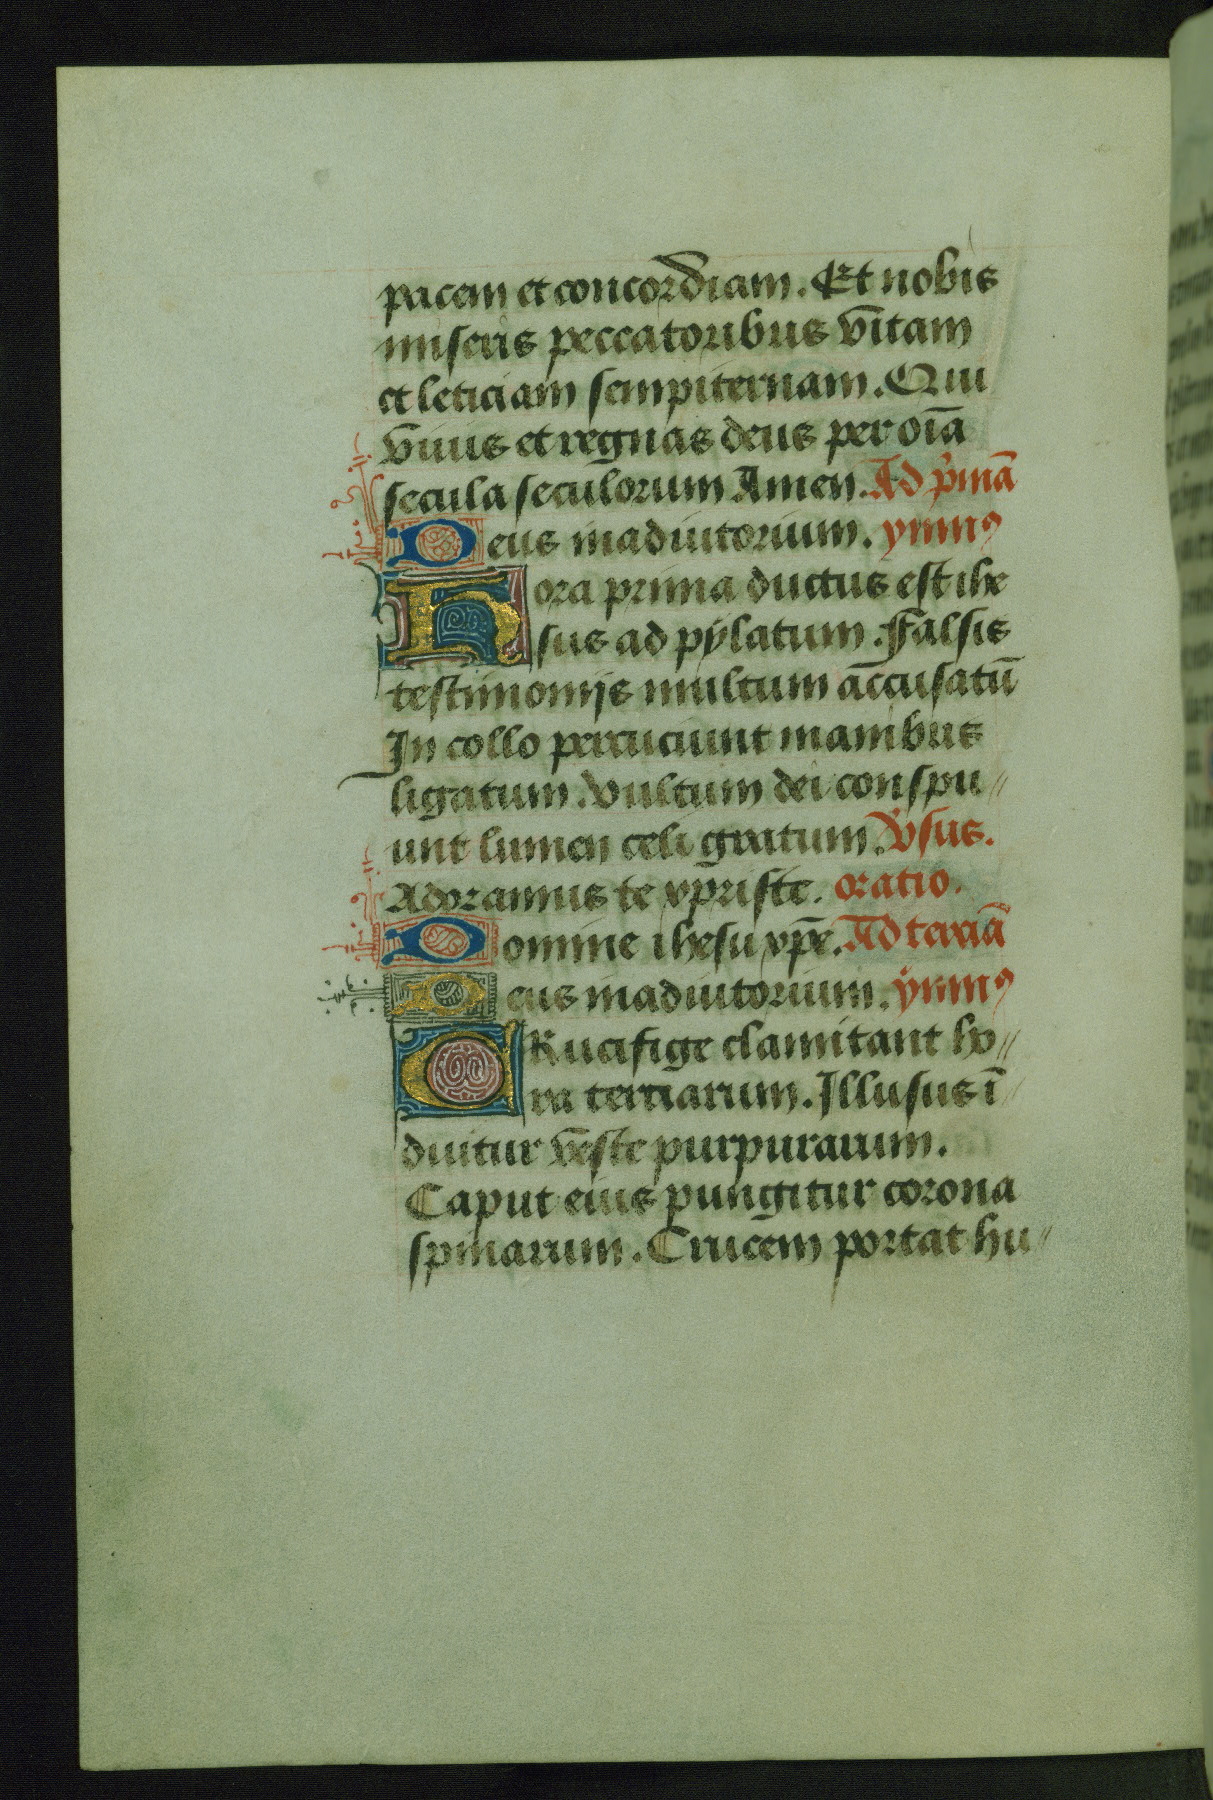 pacem et concordiam. Et nobis
miseris peccatoribus vītam
et leticiam sempiternam. Qui
viuis et regnas deus per oīa
secula seculorum Amen. Ad p̄mā
Deus in adiutorium. ymnꝰ
Hora prima ductus est ihe
sus ad pẏlatum. Falsis
testimonijs multum accusatū
In collo percuciunt manibus
ligatum. Vultum dei conspu〃
unt lumen celi gratum. v̓sus.
Adoramus te xpriste. oratio.
Domine ihesu xp̄e. Ad terciā
Deus in adiutorium. ymnꝰ
CRucifige clamitant ho〃
ra terciarum. Illusus ī
duitur veste purpurarum.
Caput eius pungitur corona
spinarum. Crucem portat hu〃